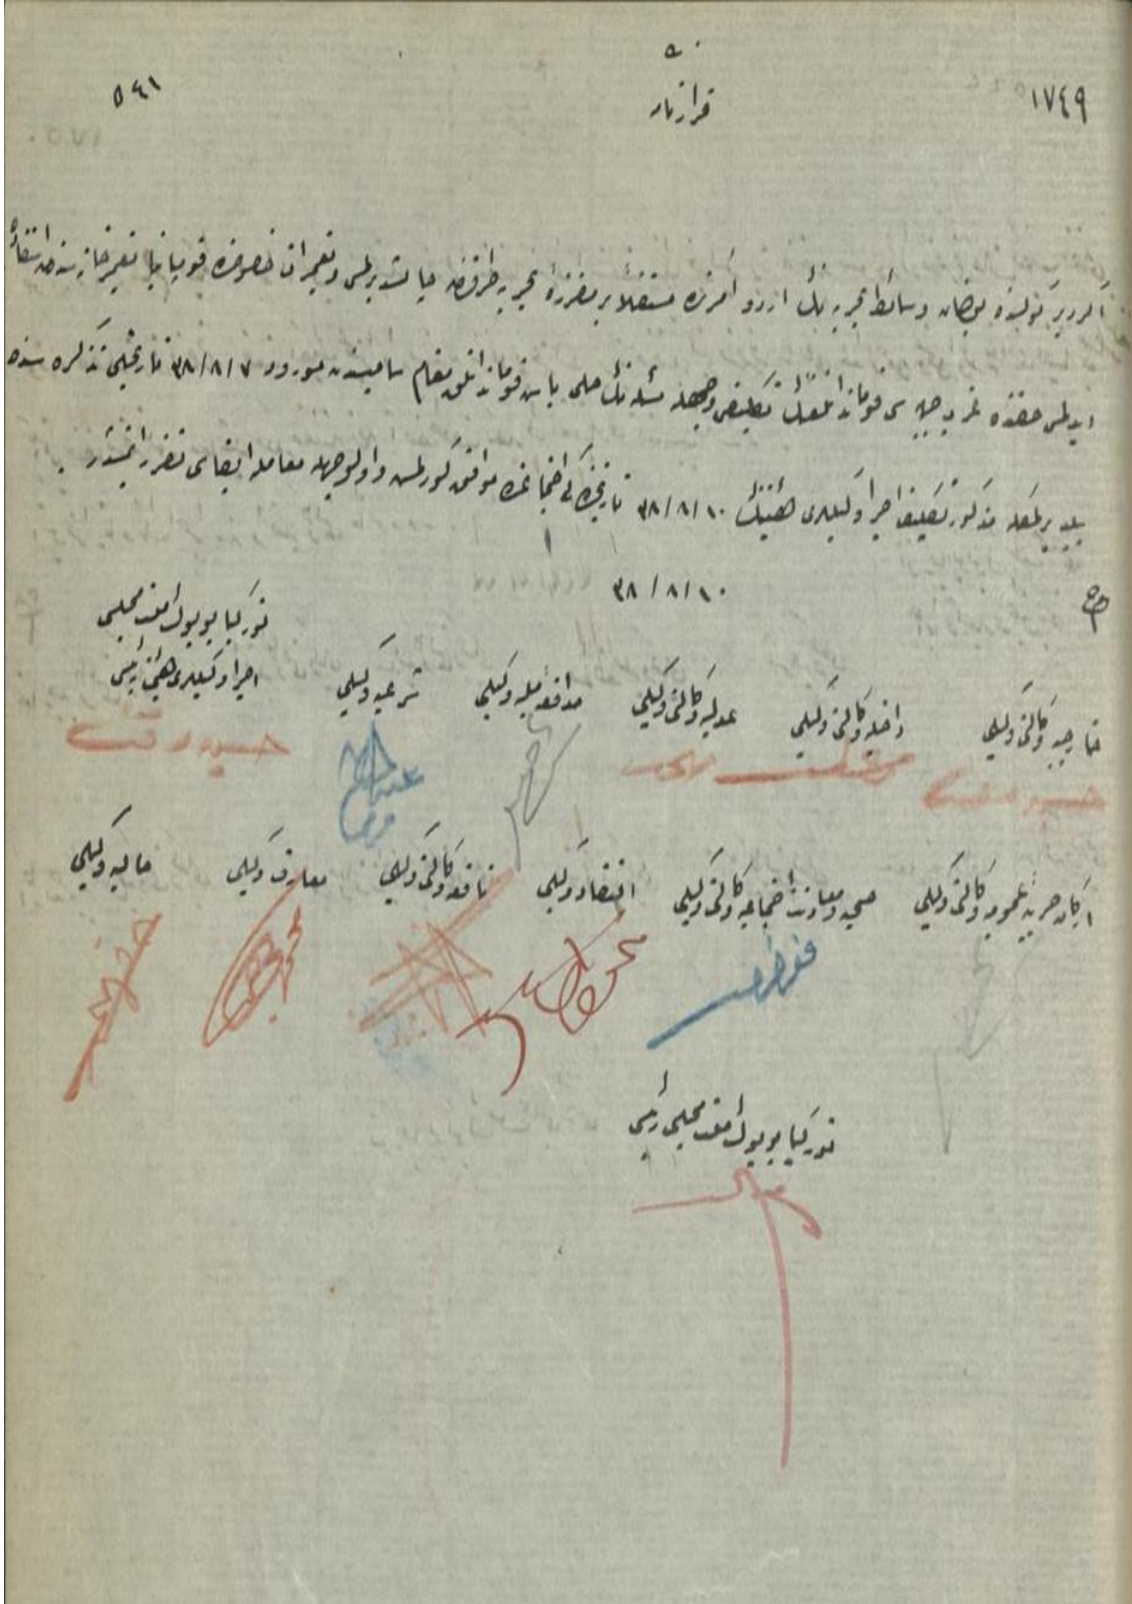 ١٧٤٩
٥٤١
قرارنامه
اگردیر گولنده بولنان وسائط بحریه‌نك اردو امرنده مستقلاً بر مفرزهٔ بحریه طرفندن چالیشدیرلمسی و تعمیرات خصوصنده قونیا تعمیرخانه‌سندن استفاده
ایدلمسی حقنده غرب جبهه‌سی قوماندانلغنك تكلیفی وجهله مسئله‌نك حلی باش قوماندانلق مقام سامیسندن مورود ٧/٨/٣٨ تاریخلی تذكره‌سنده
بیلدیرلمكله مذكور تكلیف اجرا وكیللری هیئتنك ١٠/٨/٣٨ تاریخنده‌كی اجتماعنده موافق گورلمش و اولوجهله معامله ایفاسی تقرر ایتمشدر.
١٠/٨/٣٨
توركیا بویوك ملت مجلسی
اجرا وكیللری هیئتی رئیسی
حسین رؤف
شرعیه وكیلی
مدافعهٔ ملیه وكیلی
عدلیه وكالتی وكیلی
داخلیه وكالتی وكیلی
خارجیه وكالتی وكیلی
مالیه وكیلی
معارف وكیلی
نافعه وكالتی وكیلی
اقتصاد وكیلی
صحیه و معاونت اجتماعیه وكالتی وكیلی
اركان حربیهٔ عمومیه وكالتی وكیلی
توركیا بویوك ملت مجلسی رئیسی